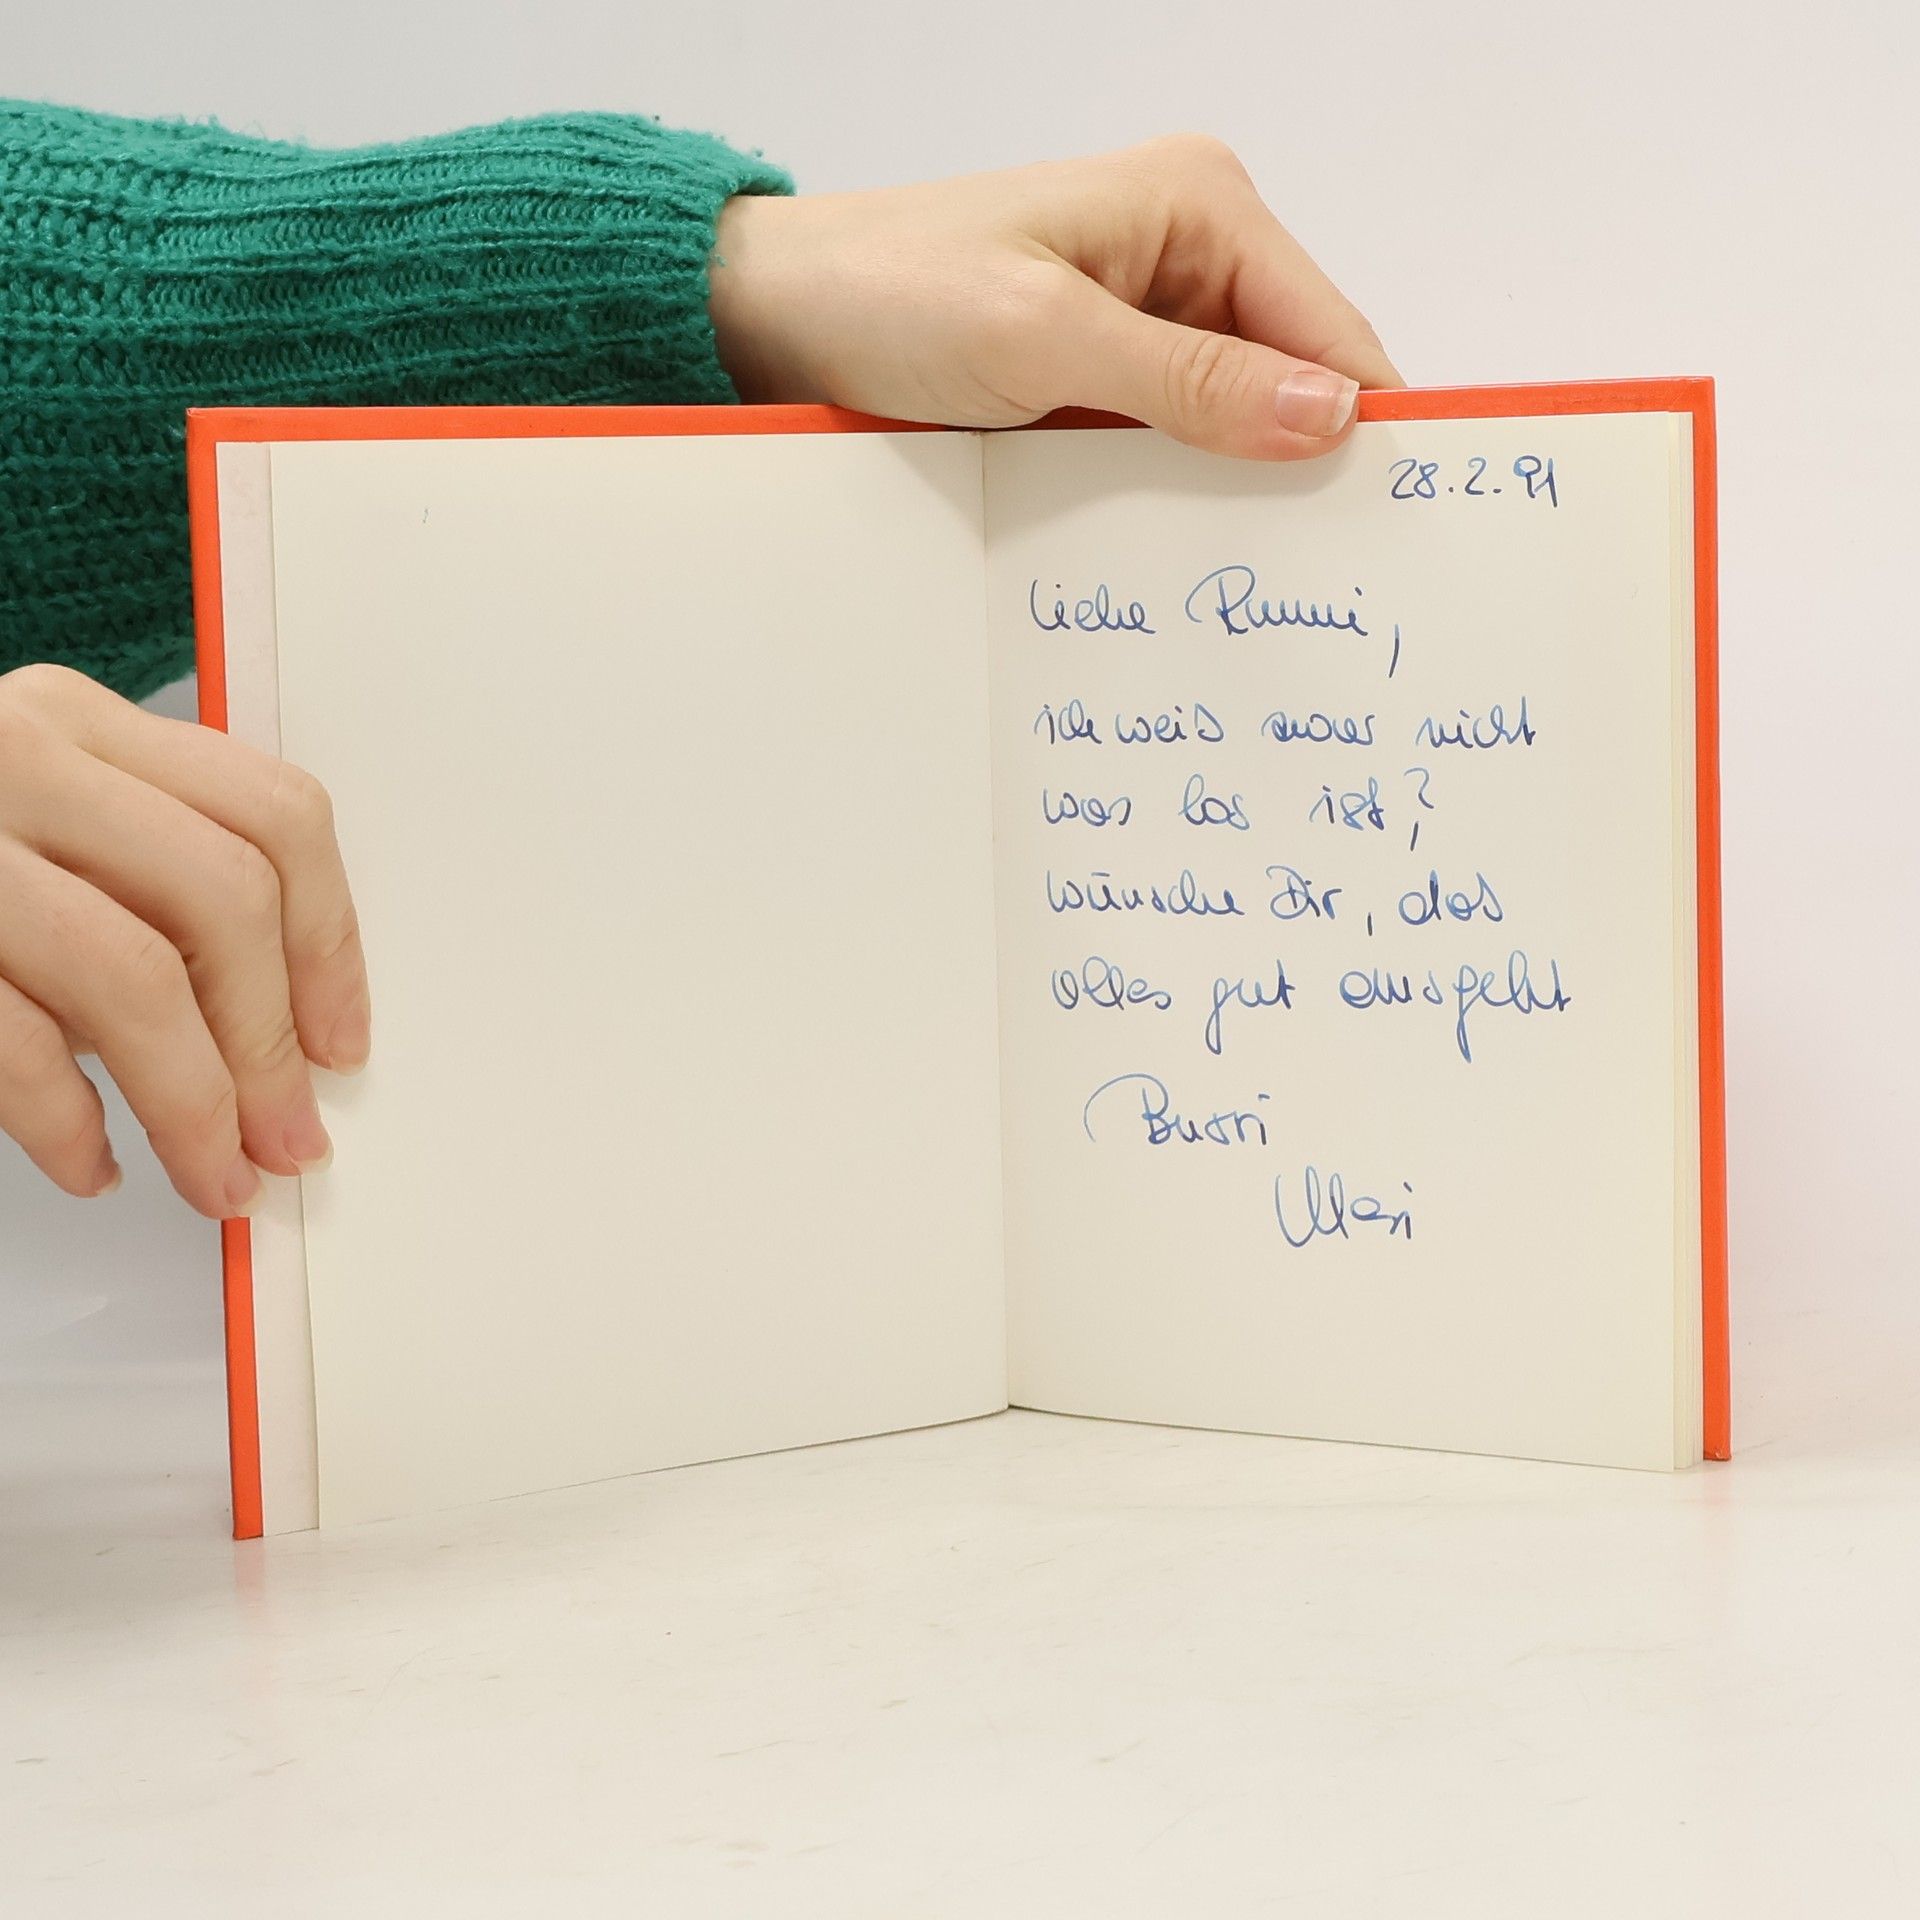 28.2.91
Liebe Rummi,
ich weiß zwar nicht
was los ist?
wünsche Dir, daß
alles gut ausgeht
Bussi